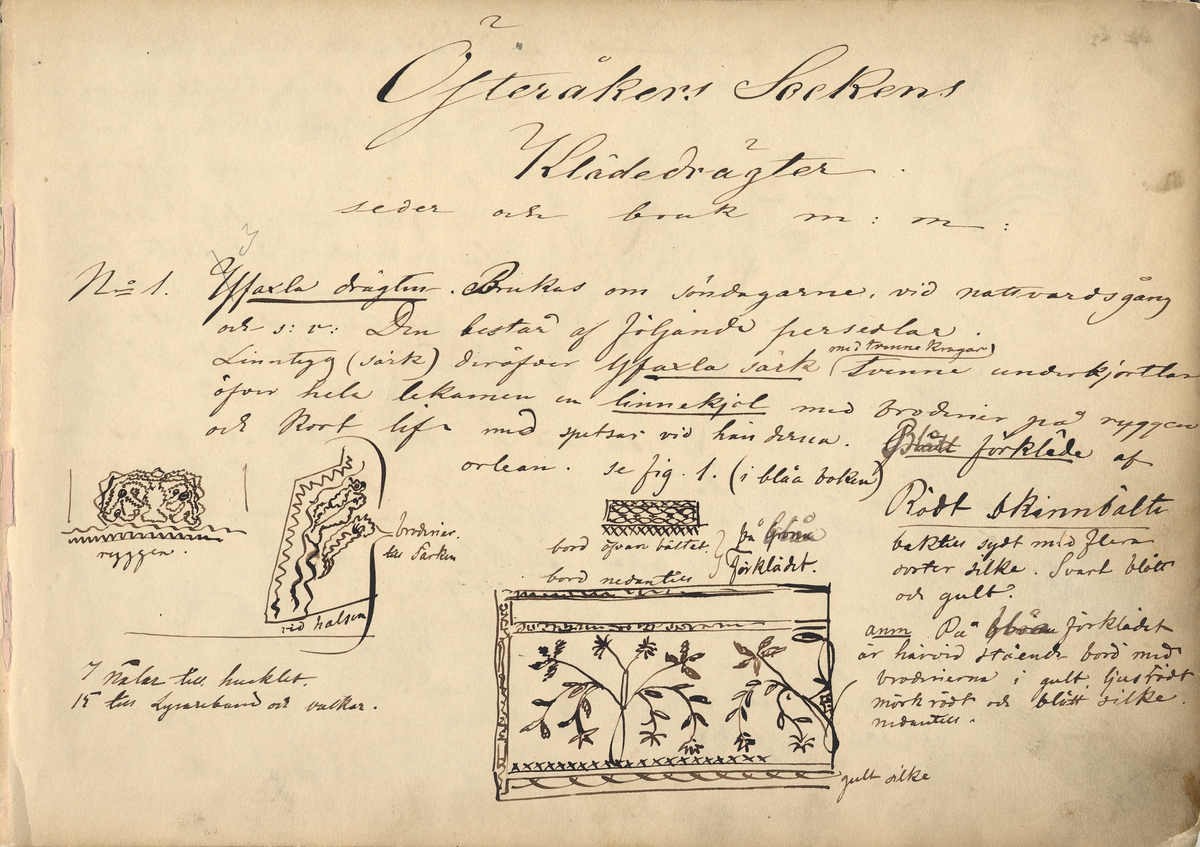 Österåkers Sockens
Klädedrägter.
seder och bruk m: m:
No 1. Yfsaxla drägten. Brukas om söndagarne, vid nattvardsgång
och s: v: Den består af följande persedlar.
Linntyg (särk) deröfver Yfsaxla särk (med tvenne kragar) Tvenne underkjortlar
öfver hela lekamen en linnekjol med broderier på ryggen
och kort lif med spetsar vid händerna. Blått förkläde af
orlean. se fig. 1. (i blåa boken)
ryggen.
vid halsen
broderier.
till Särken
7 nålar till hucklet.
15 till Lysareband och valkar.
bord öfvan bältet.
bord nedantill
på blåa
förklädet.
Rödt skinnbälte
baktill sydt med flera
sorter silke. Svart blått
och gult.
anm På blåa förklädet
är härvid stående bord med
broderierna i gult, ljusrödt
mörkrödt och blått silke.
nedantill.
gult silke